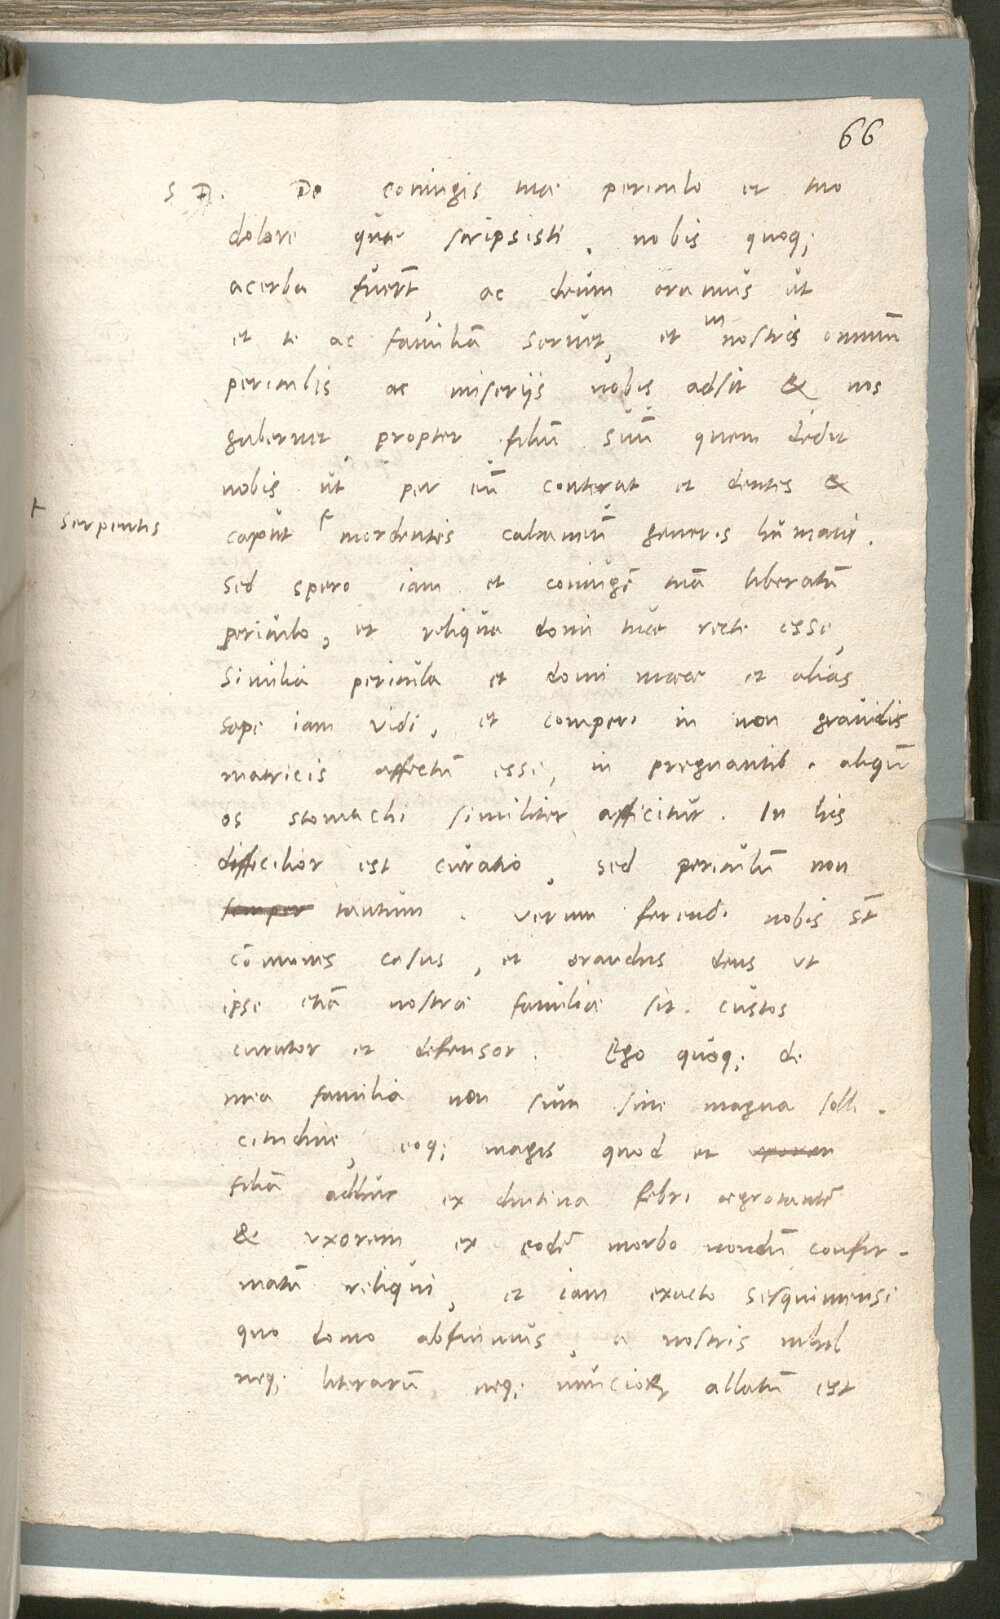 66
S D. De coniugis tuæ periculo et tuo
dolore quæ scripsisti, nobis quoq;
acerba fuerūt, ac deum oramus ut
et te ac familiā servet, et in nostris omniū
periculis ac miserijs nobis adsit & nos
gubernet propter filiū suū quem dedit
nobis ut per eū conterat et dentes &
† serpentis
caput † mordentis calcaneū generis humani.
Sed spero iam et coniugē tuā liberatā
periculo, et reliqua domi tuæ recte esse,
Similia pericula et domi meæ et alias
sæpe iam vidi, et comperi in non gravidis
matricis affectū esse, in pregnantib. aliquū
os stomachi similiter afficitur. In his
difficilior est curatio, sed periculū non
semper tantum. Verum ferendi nobis sūt
cōmunes casus, et orandus deus ut
ipse etiā nostræ familiæ sit custos
curator et defensor. Ego quoq; de
mea familia non sum sine magna solli-
citudine, eoq; magis quod et uxorem
filiā adhuc ex diutina febri ægrotantē
& uxorem ex eodē morbo nondū confir-
matā reliqui, et iam exacto sesquimensi
quo domo abfuimus, a nostris nihil
neq; literarū neq; nunciorꝝ allatū est